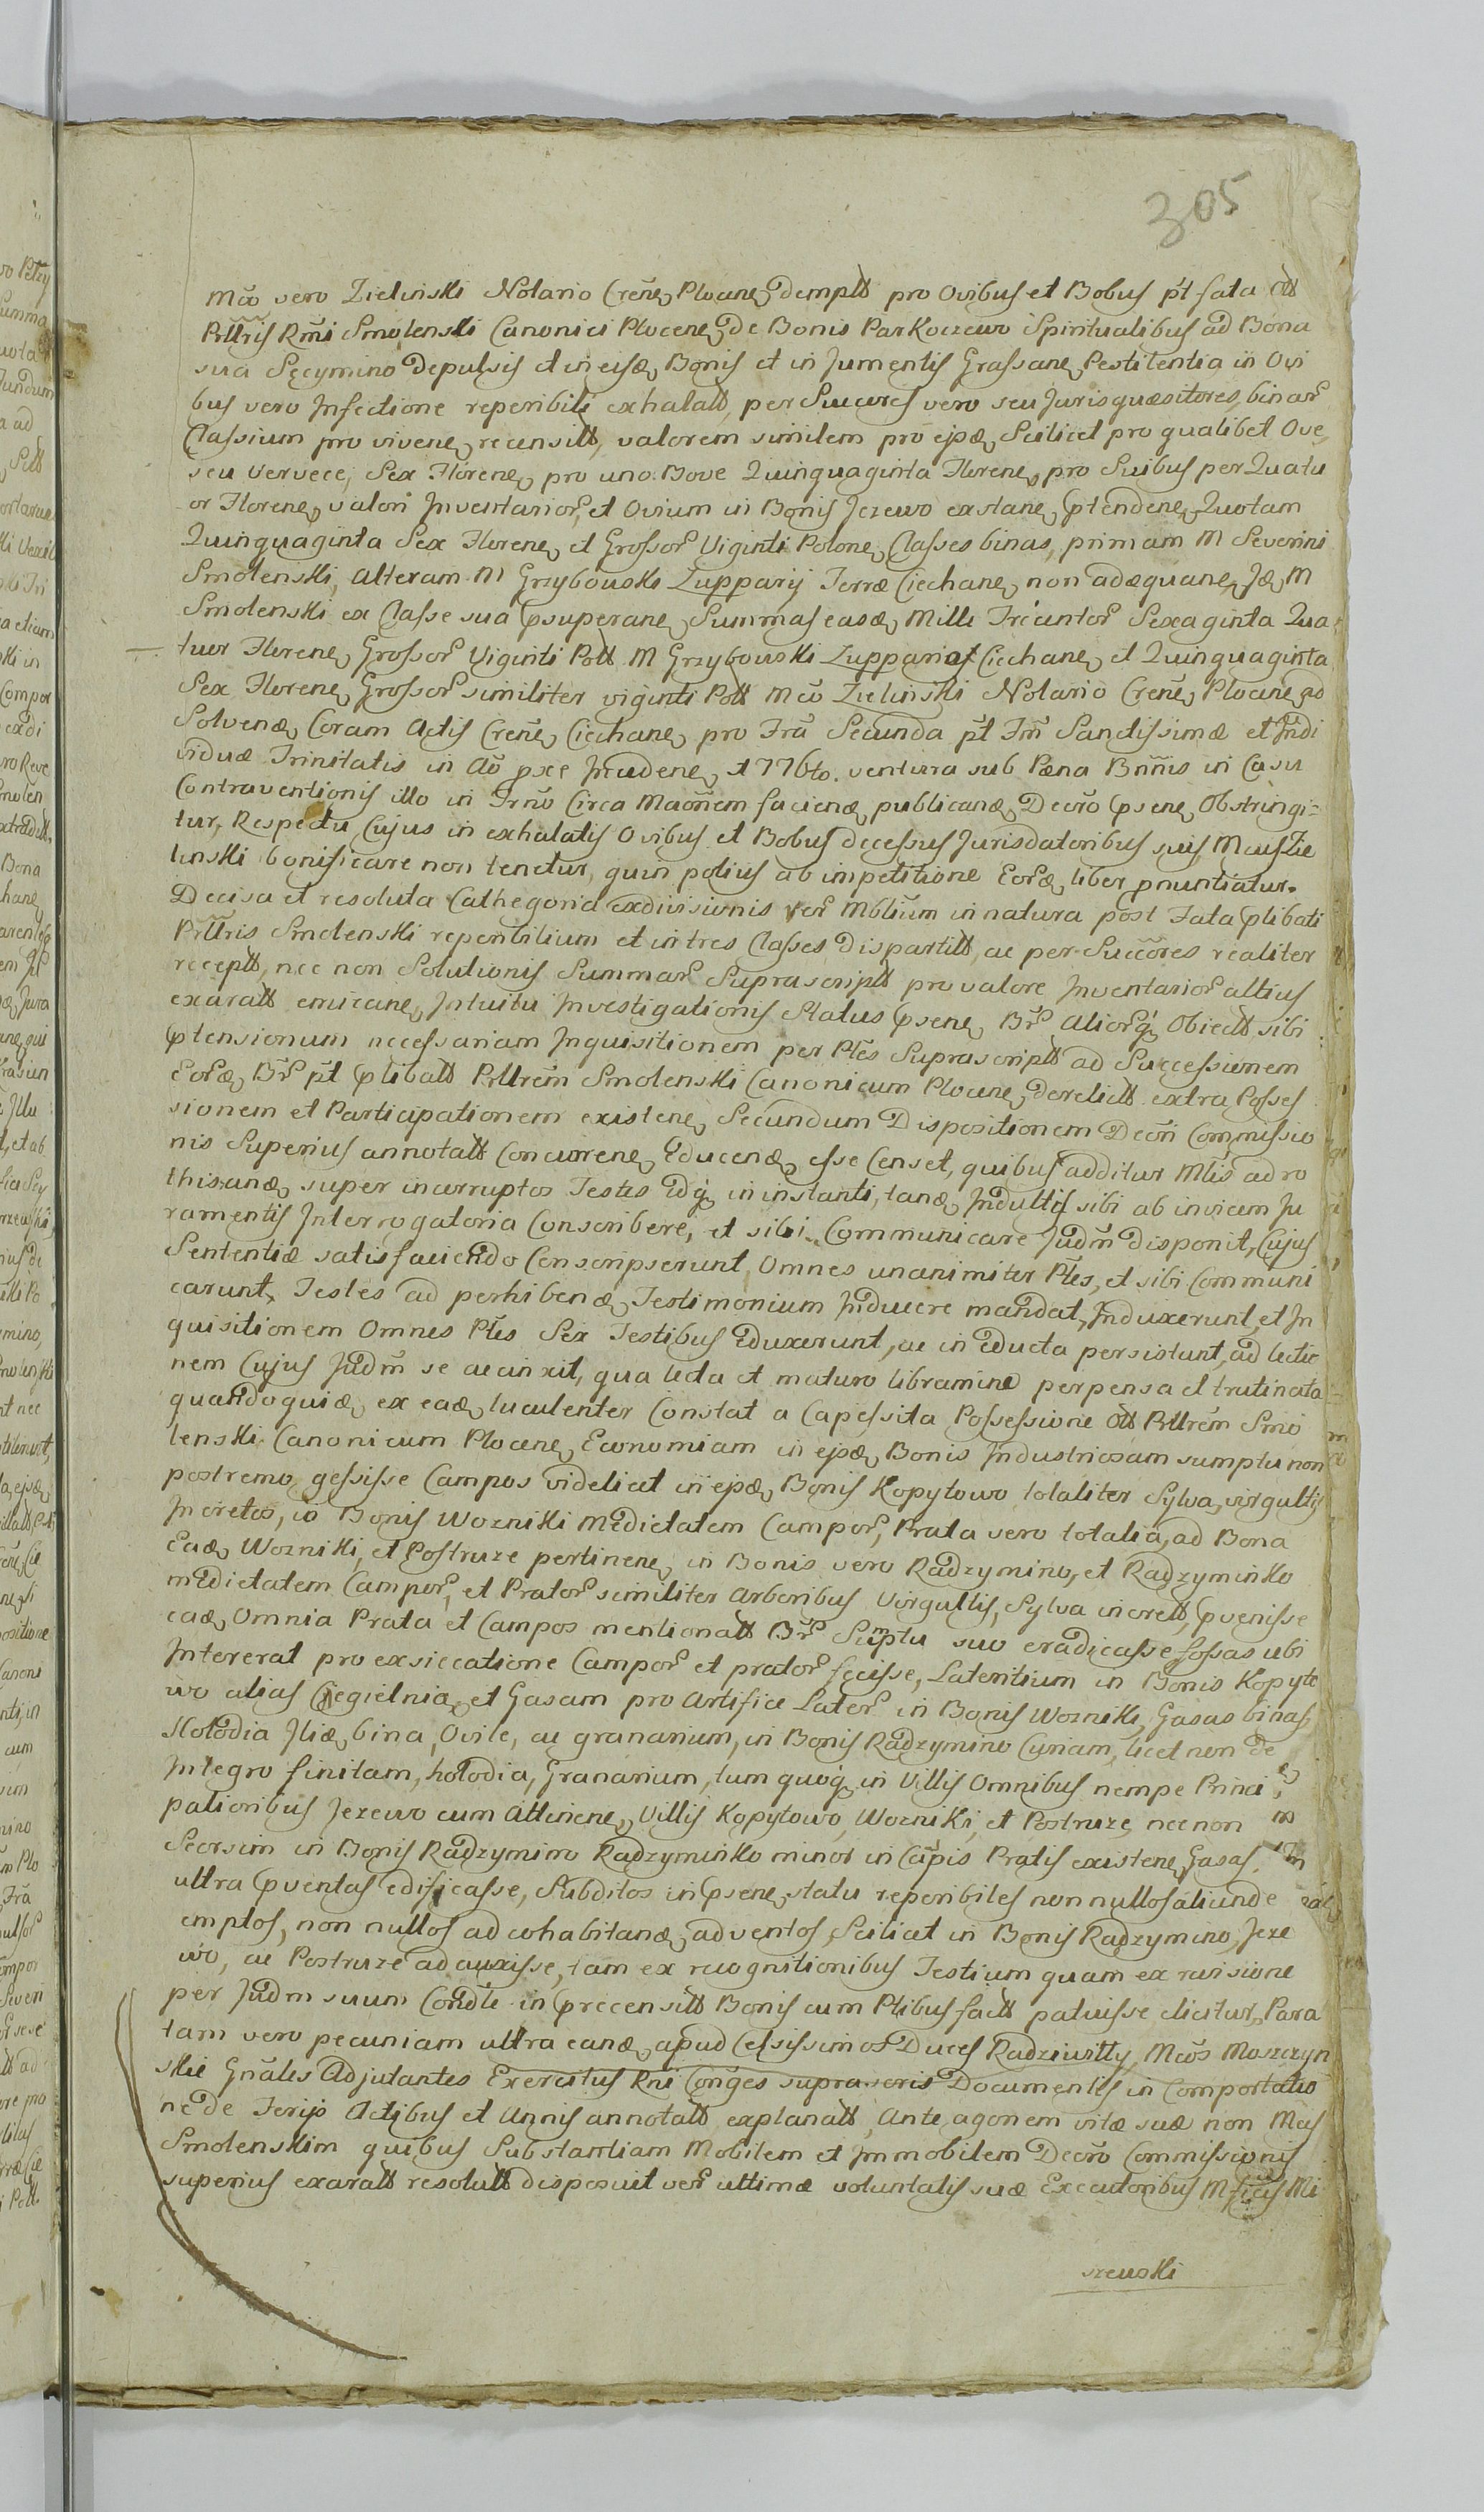 305
Mco vero Zielinski Notario Crene Plocane, dempts pro Ovibus et Bobus pt fata olt
Plltris Rmi Smolenski Canonici Plocene, de Bonis Parkoczewo Spiritualibus ad Bona
sua Sęcymino depulsis et in eisde Bonis et in Jumentis Grassane Pestilentia in Ovi
bus vero Infectione reperibili exhalatt, per Succeres vero seu Jurisquæsitores, binar
Classium pro vivene recensitt, valorem similem pro ejsde Scilicet pro qualibet Ove,
seu Vervece, Sex Florene, pro uno Bove Quinquaginta Florene, pro Suibus per Quatu
or Florene, valori Inventarior, et Ovium in Bonis Jezewo exstane, ptendene, Quotam
Quinquaginta Sex Florene, et Grossor Viginti Polone, Classes binas, primam M Severini
Smolenski, alteram M Grzybowski Zupparij Terræ Ciechane, non adæquane, Ide M
Smolenski ex Classe sua psuperane, Summas easde, Mille Trecentor Sexaginta Qua
tuor Florene, Grossor Viginti Poll M Grzybowski Zuppario Ciechane, et Quinquaginta
Sex Florene, Grossor similiter viginti Poll Mco Zielinski Notario Crene, Plocane ad
Solvend, Coram Actis Crene, Ciechane, pro Fra Secunda pt Fm Sanctissimæ et Indi
viduæ Trinitatis in Ao pxe Incidene, 1776to. ventura sub Pæna Bnnis in Casu
Contraventionis illo in Trno Circa Maonem faciend, publicand, Decro psene, Obstringi=
tur, Respectu Cujus in exhalatis Ovibus et Bobus decessus Jurisdatoribus suis, Mcus Zie
linski bonificare non tenetur, quin potius ab impetitione Eorde, liber pnuntiatur.
Decisa et resoluta Cathegoria exdivisionis rer Mblium in natura post Fata plibati
Plltris Smolenski reperibilium et in tres Classes dispartitt, ac per Succores realiter
receptt, nec non Solutionis Summar Suprascriptt pro valore Inventarior altius
exaratt emicane, Intuitu Investigationis Status psene, Br Aliorq Obiectt sibi
ptensionum necessariam Inquisitionem per Ptes Suprascriptt ad Successionem
Eorde Br pt plibatt Plltrem Smolenski Canonicum Plocane, derelictt extra Posses
sionem et Participationem existene, Secundum Dispositionem Decri Commissio
nis Superius annotatt Concurrene, Educend, esse Censet, quibus additur Mtis ad ro
thisand, super incorruptos Testes Edq in instanti, tand, Indultis sibi ab invicem Ju
ramentis Interrogatoria Conscribere, et sibi Communicare Judm disponit, Cujus
Sententiæ satisfaciendo Conscripserunt Omnes unanimiter Ptes, et sibi Communi
carunt, Testes ad perhibend, Testimonium Inducere mandat, Induxerunt, et In
quisitionem Omnes Ptes Sex Testibus Eduxerunt, ac in Educta persistunt, ad lectio
nem Cujus Judm se accinxit, qua lecta et maturo libramine perpensa et trutinata
quandoquid, ex eade, luculenter Constat a Capessita Possessione olt Plltrem Smo
lenski Canonicum Plocane, Economiam in ejsde, Bonis Industriosam sumptu non
postremo gessisse Campos videlicet in ejsde, Bonis Kopytowo totaliter Sylva, virgultis
Incretos, in Bonis Wozniki Medietatem Campor, Prata vero totalia, ad Bona
Eade, Wozniki, et Postruze pertinene, in Bonis vero Radzymino, et Radzyminko
medietatem Campor, et Prator similiter Arboribus Virgultis, Sylva incrett, pvenisse
eade, Omnia Prata et Campos mentionatt Br Sumptu suo eradicasse fossas ubi
Intererat pro exsiccatione Campor et prator fecisse, Lateritium in Bonis Kopyto
wo alias Cegielnia, et Gasam pro Artifice Later in Bonis Wozniki, Gasas binas,
Holodia Itide, bina, Ovile, ac granarium, in Bonis Radzymino Curiam, licet non de
Integro finitam, holodia, Granarium, tum quoq in Villis Omnibus nempe Princi
palioribus Jezewo cum Attinene, Villis Kopytowo, Wozniki, et Postruze, nec non
Seorsim in Bonis Radzymino Radzyminko minor in Campis Pratis existene, Gasas,
ultra pventas edificasse, Subditos in psene, statu reperibiles non nullos aliunde
emptos, non nullos ad cohabitand, adventos, Scilicet in Bonis Radzymino, Jeze
wo, ac Postruze adauxisse, tam ex recognitionibus Testium quam ex revisione
per Judm suum Condle in precensitt Bonis cum Ptibus factt patuisse elicitur, Para
tam vero pecuniam ultra eand, apud Celsissimos Duces Radziwilly, Mcos Moszczyn
skie Gnales Adjutantes Exercitus Rni Conges supra scris Documentis in Comportatio
ne de Terijs Actibus et Annis annotatt explanatt, Ante agonem vitæ suæ non Mcis
Smolenskim quibus Substantiam Mobilem et Immobilem Decro Commissionis
superius exaratt resolutt disposuit ver ultimæ voluntatis suæ Executoribus Mficis Mi
szewski